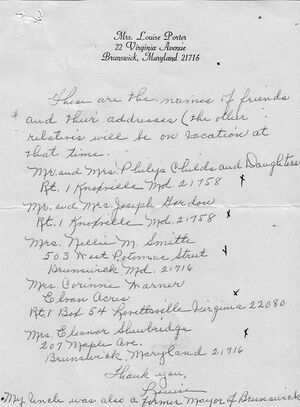 Mrs. Louise Porter
22 Virginia Avenue
Brunswick, Maryland 21716
These are the names of friends
and their addresses (the other
relatives will be on vacation at
that time.
Mr. and Mrs. Philys Childs and Daughters
Rt. 1 Knoxville Md. 21758 x
Mr. and Mrs. Joseph Gordon
Rt. 1 Knoxville Md. 21758 x
Mrs. Nellie M. Smith
503 West Potomac Street
Brunswick Md. 21716
Mrs. Corinne Warner
Elvan Acres
Rt. 1 Box 54 Lovettsville Virginia 22080
Mrs. Eleanor Shewbridge
207 Maple Ave.
Brunswick, Maryland 21716
Thank you,
Louise
My Uncle was also a former Mayor of Brunswick